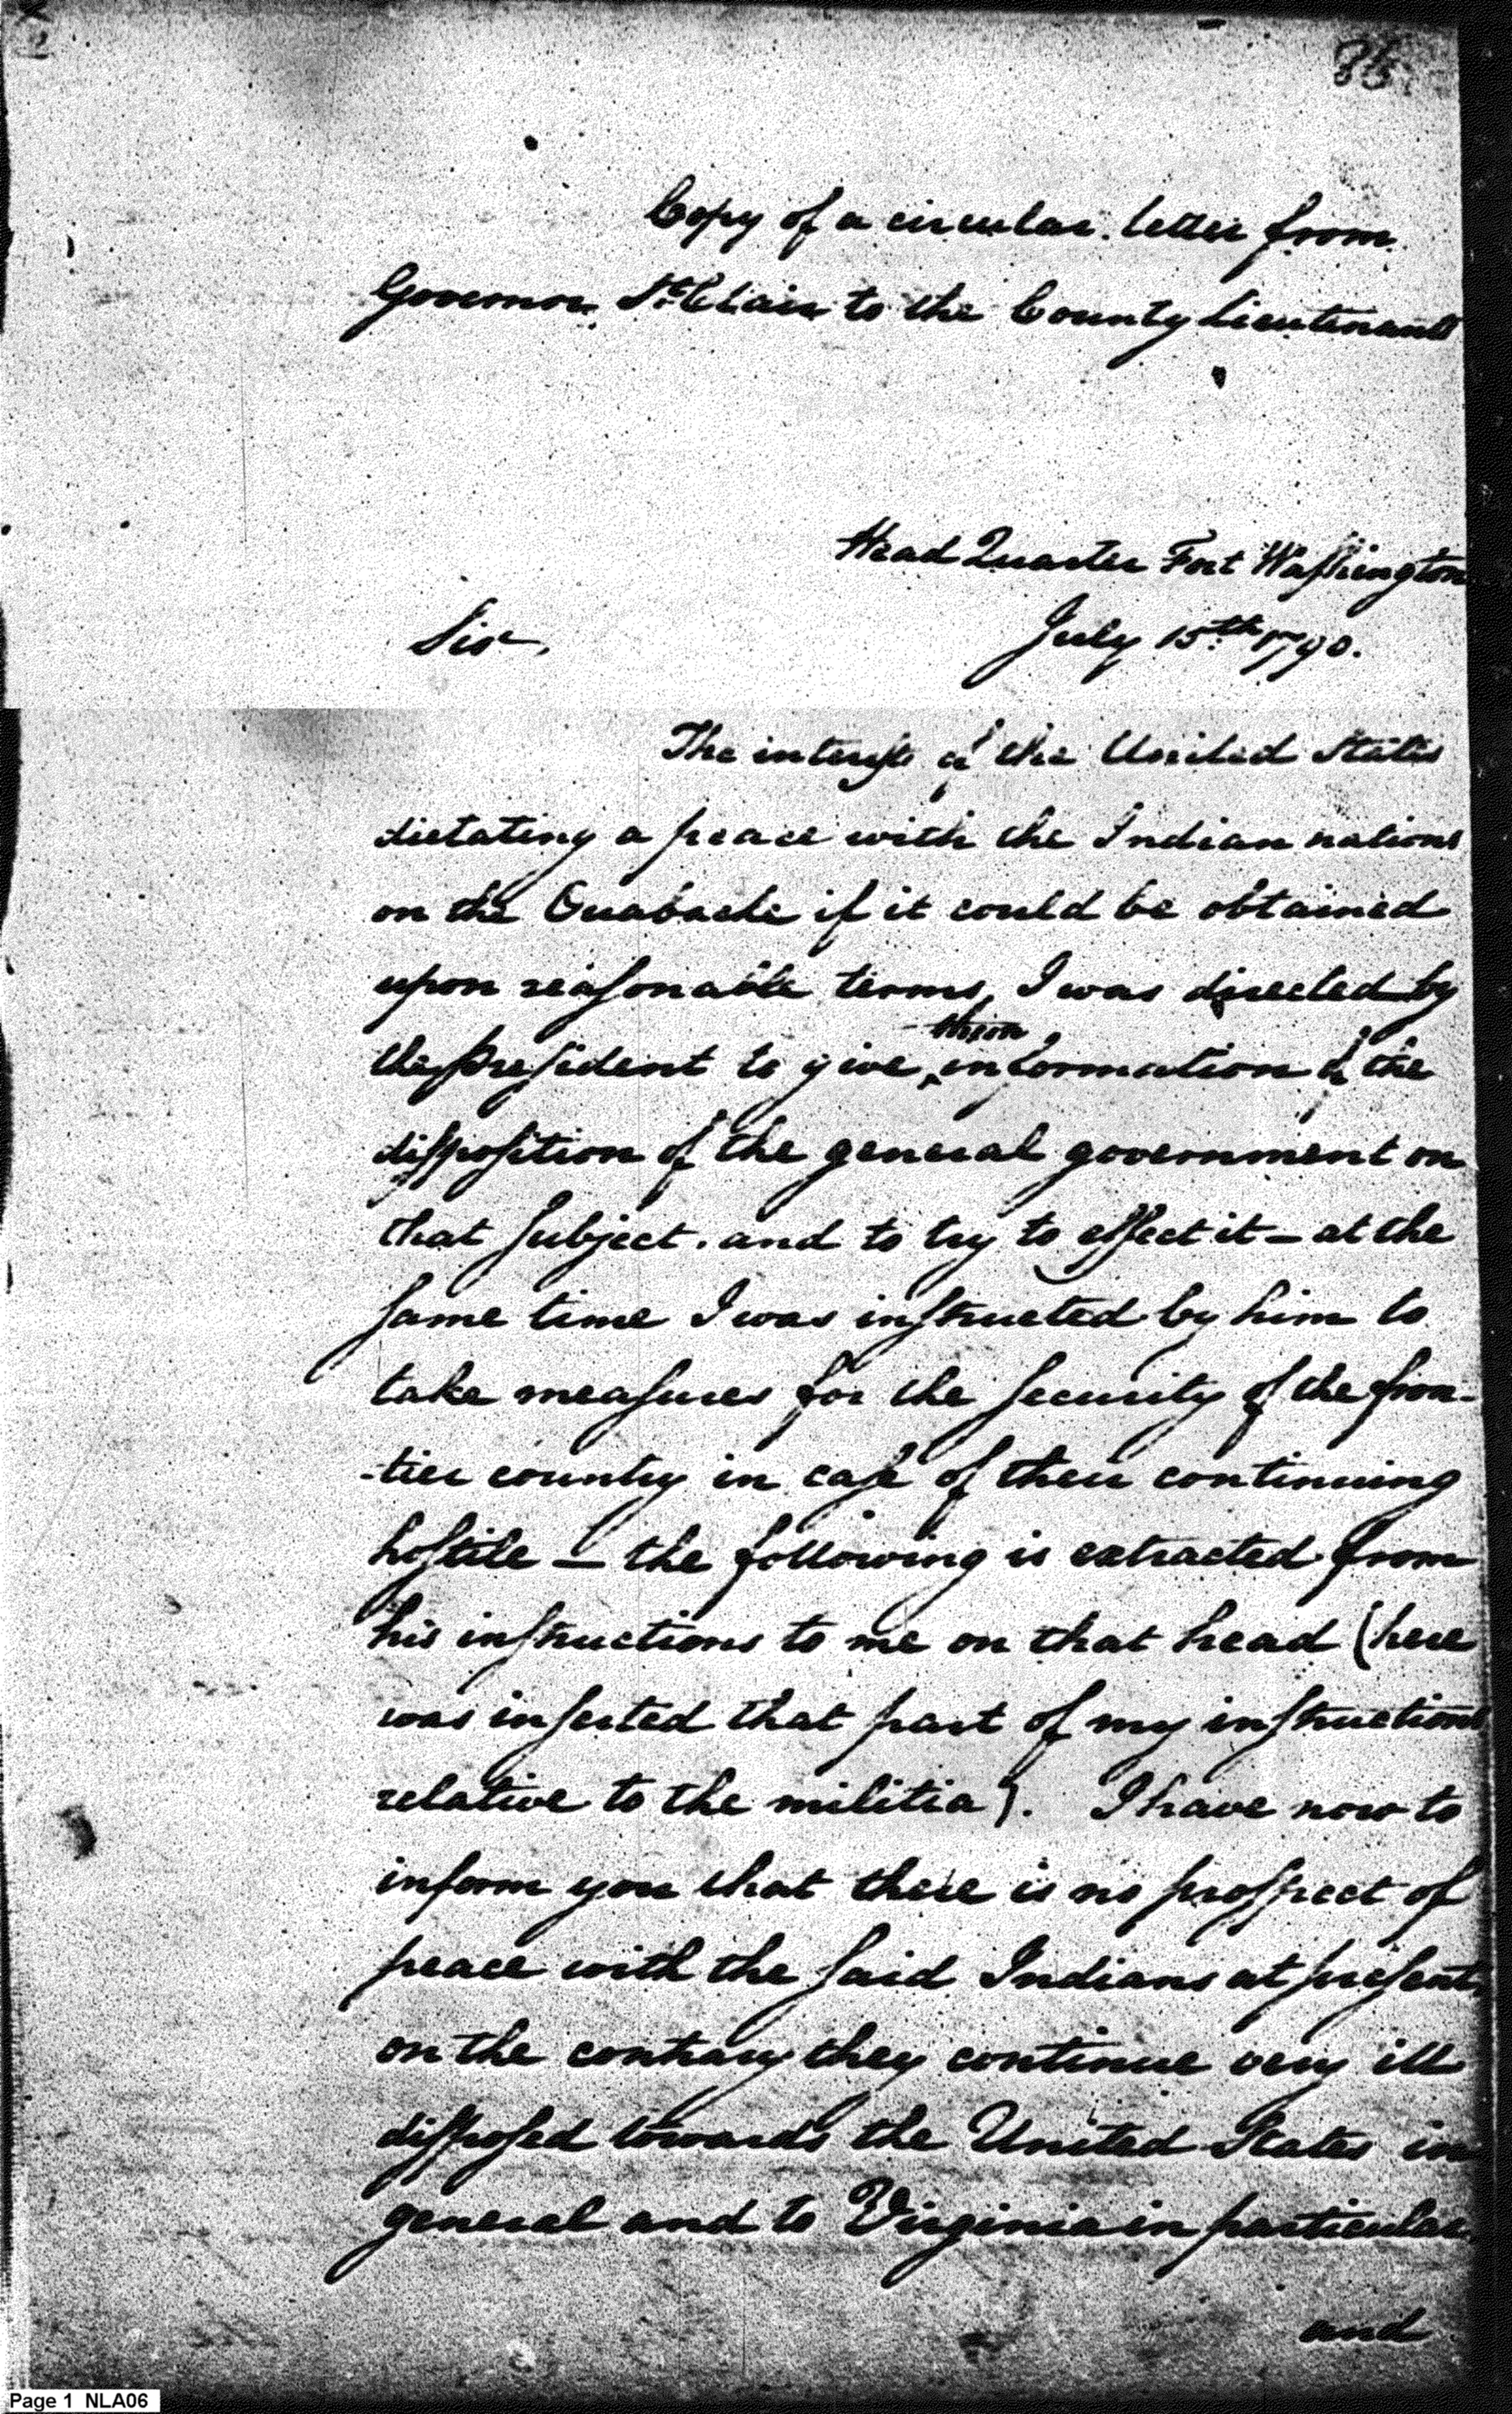 Copy of a circular letter from
Governor St Clair to the County Lieutenants
Head Quarter Fort Washington
July 15th 1790.
Sir,
The interests of the United States
dictating a peace with the Indian nations
on the Ouabache if it could be obtained
upon reasonable terms, I was directed by
them
the President to give information of the
disposition of the general government on
that Subject. and to try to effect it – at the
same time I was instructed by him to
take measures for the Security of the fron-
-tier country in case of their continuing
hostile – the following is extracted from
his instructions to me on that head (here
was inserted that part of my instructions
relative to the militia). I have now to
inform you that there is no prospect of
peace with the said Indians at present,
on the contrary they continue very ill
disposed towards the United States in
general and to Virginia in particular.
and
Page 1 NLA06